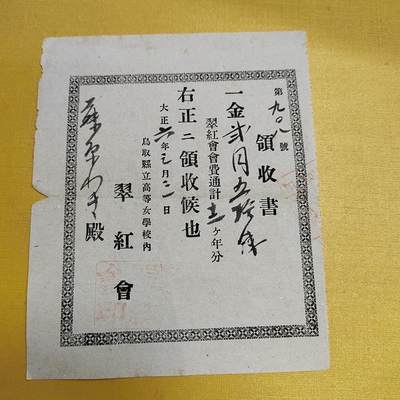 第九〇八號
領收書
一金貳円五拾銭
翠紅會會費通計ヶ年分
右正ニ領收候也
大正六年月日
鳥取縣立高等女學校内
翠紅會
殿